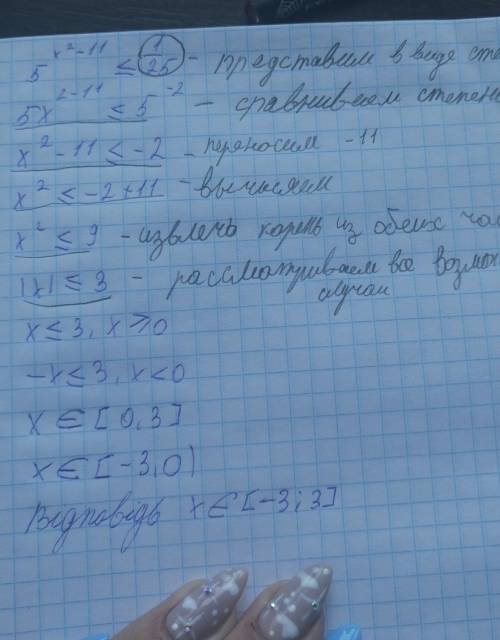 5^{x²-11} ≤ 1/25 - представим в виде
5x^{2-11} ≤ 5^{-2} - сравниваем
x² - 11 ≤ -2 - переносим -11
x² ≤ -2 + 11 - вычисляем
x² ≤ 9 - извлечь корень из обеих
|x| ≤ 3 - рассматриваем все
случаи
x ≤ 3, x ≥ 0
-x ≤ 3, x < 0
x ∈ [0, 3]
x ∈ [-3, 0)
Відповідь x ∈ [-3; 3]